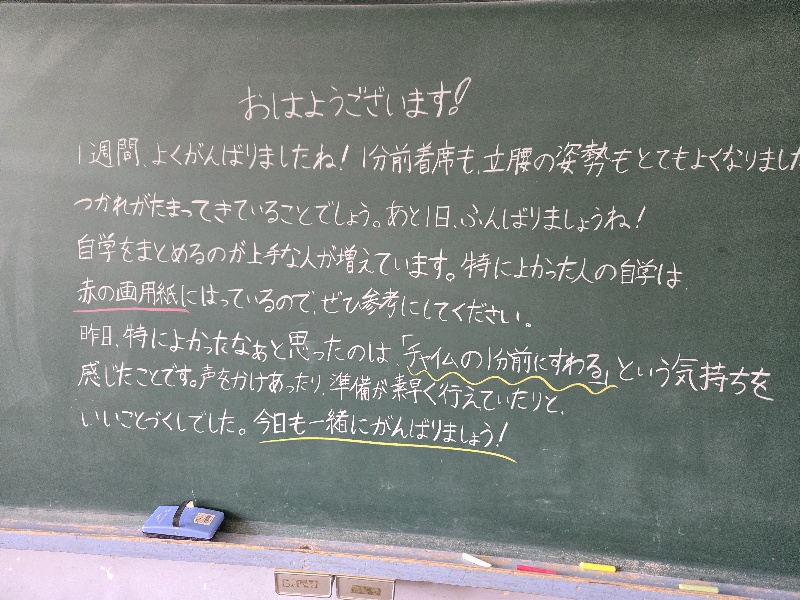 おはようございます!
1週間、よくがんばりましたね!1分前着席も、立腰の姿勢もとてもよくなりました
つかれがたまってきていることでしょう。あと1日、ふんばりましょうね!
自学をまとめるのが上手な人が増えています。特によかった人の自学は
赤の画用紙にはっているので、ぜひ参考にしてください。
昨日、特によかったなぁと思ったのは、「チャイムの1分前にすわる」という気持ちを
感じたことです。声をかけあったり、準備が素早く行えていたりと、
いいことづくしでした。今日も一緒にがんばりましょう!